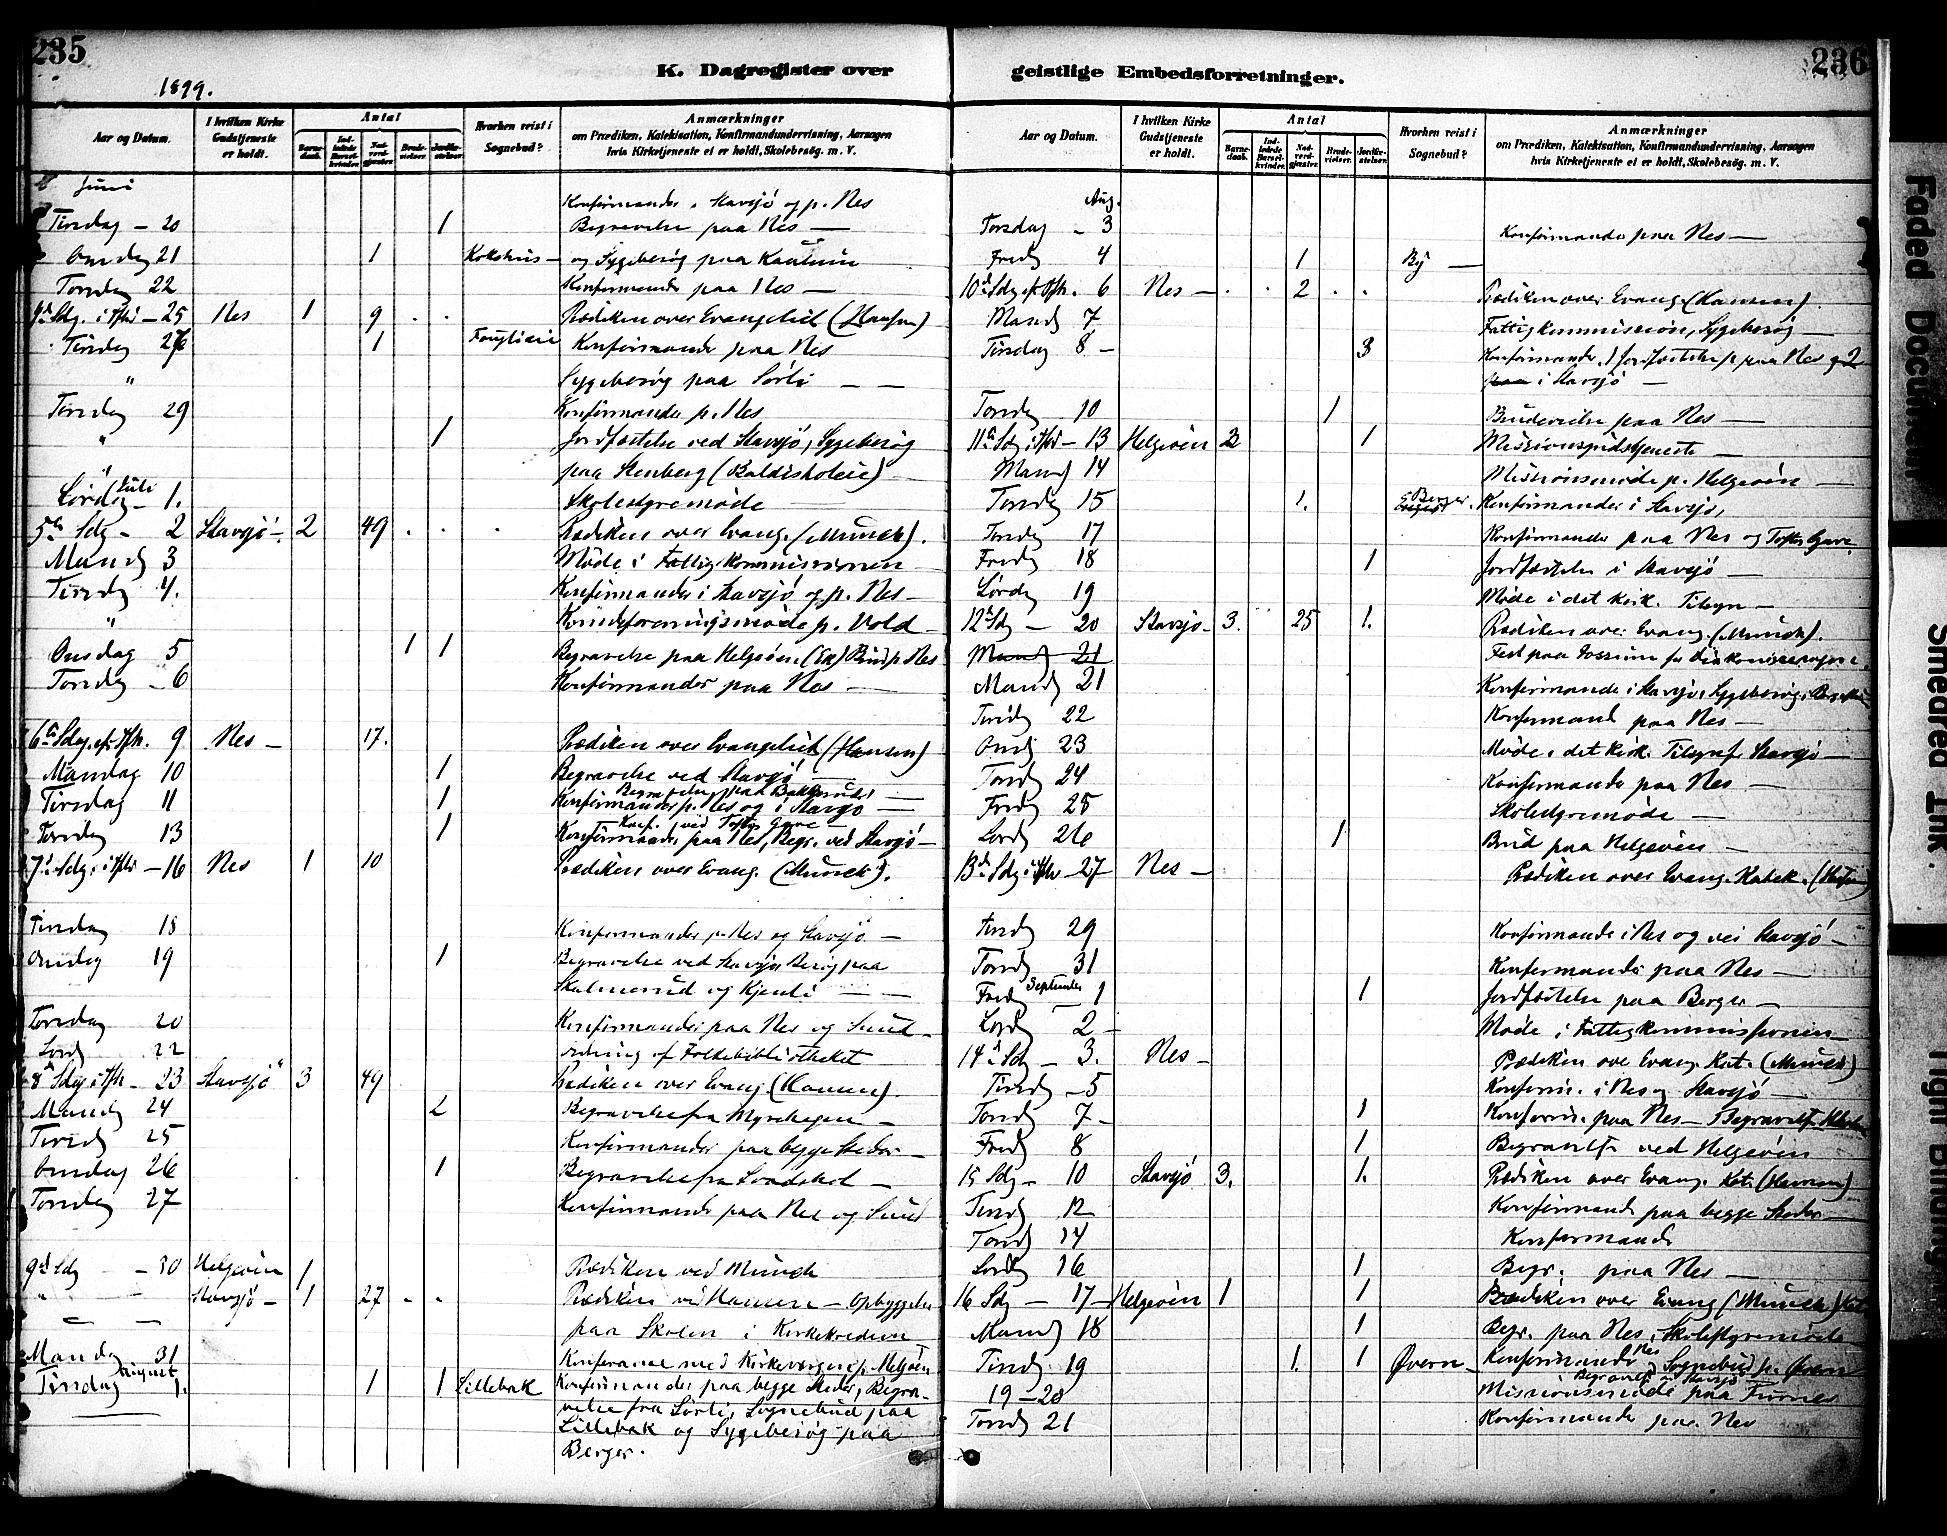 235
1899.
K. Dagregister over
Aar og Datum.
I hvilken Kirke Gudstjeneste er holdt.
Antal
Barnedaab.
Indledede Barselkvinder.
Nadverdgjester.
Brudevielser.
Jordfæstelser.
Hvorhen reist i Sognebud?
Anmærkninger
om Prædiken, Katekisation, Konfirmandundervisning, Aarsagen hvis Kirketjeneste ei er holdt, Skolebesøg. m. V.
Juni
Konfirmander i Stavsjö og p. Nes
Tirsdag - 20 1 Begravelse paa Nes —
Onsdag 21 1 og Sygebesøg paa
Torsdag 22 Konfirmander paa Nes —
Sdg. i Tfti - 25 Nes 1 9 . . Prædiken over Evangeliet (Hansen)
Tirsdag 27 1 Konfirmander paa Nes
" Sygebesøg paa Sørli — —
Torsdag 29 Konfirmander p. Nes
" 1 Jordfæstelse ved Stavsjö, Sygebesøg
paa Stenberg
Juli
Lördag - 1. Skolestyremöde
5te Sdg - 2 Stavsjö - 2 49 . . . Prædiken over Evang. (Munch).
Mandg 3 Möde i Fattigkommissionen
Tirsdg 4. Konfirmander i Stavsjö og p. Nes -
" Kvindeforeningsmöde p. Vold
Onsdag 5 1 1 Begravelse paa Helgøen. Brud p. Nes
Torsdag - 6 Konfirmander paa Nes —
6te Sdg. eft. Tfti. 9 Nes - 17. Prædiken over Evangeliet (Hansen)
Mandag 10 1 Begravelse ved Stavsjö
Begravelse paa
Tirsdag 11 1 Konfirmander p. Nes og i Stavsjö —
Konf. ved Toftes Gave
Torsdag 13 1 Konfirmander paa Nes, Begr. ved Stavsjö -
7de Sdg. i Tfti - 16 Nes 1 10 Prædiken over Evang. (Munch).
Tirsdag 18 Konfirmander p. Nes og Stavsjö —
Onsdag 19 1 Begravelse ved Stavsjö, Besøg paa
Skalmerud og Kjenli — —
Torsdag 20 Konfirmander paa Nes og Smed
Lördg 22 Ordning af Folkebibliotheket
8de Sdg i Tfti - 23 Stavsjö 3 49 Prædiken over Evang (Hansen).
Mandg 24 2 Begravelse fra Myrehagen —
Tirsdg 25 Konfirmander paa begge Steder —
Onsdag 26 1 Begravelse fra —
Torsdag 27 Konfirmander paa Nes og Smed
9de Sdg - 30 Helgeöen 1 Prædiken ved Munch
" Stavsjö - 1 27 . . Prædiken ved Hansen — Opbyggelse
paa Skolen i Kirkekredsen
Mandag 31 Konferanse med Kirkeværgen p. Helgöen
August
Tirsdag 1. 1 1 Lillebak Konfirmander paa begge Steder, Begra-
velse fra Sørli, Sognebud paa
Lillebak og Sygebesøg paa
Berger.
236
geistlige Embedsforretninger.
Aar og Datum.
I hvilken Kirke Gudstjeneste er holdt.
Antal
Barnedaab.
Indledede Barselkvinder.
Nadverdgjester.
Brudevielser.
Jordfæstelser.
Hvorhen reist i Sognebud?
Anmærkninger
om Prædiken, Katekisation, Konfirmandundervisning, Aarsagen hvis Kirketjeneste ei er holdt, Skolebesøg. m. V.
Aug.
Torsdag - 3 Konfirmander paa Nes —
Fredg 4 1 By —
10de Sdg eft. Tfti. 6 Nes - . . 2 . . Prædiken over Evang (Hansen).
Mandg 7 Fattigkommission, Sygebesøg —
Tirsdag 8 - 3 Konfirmander, 1 Jordfæstelse p paa Nes og 2
paa i Stavsjö —
Torsdg 10 1 Brudevielse paa Nes —
11te Sdg i Tfti - 13 Helgeöen 2 1 Missionsgudstjeneste —
Mandg 14 Missionsmöde p. Helgeöen —
Tirsdg 15 1. Berger. Konfirmander i Stavsjö,
Torsdg 17 Konfirmander paa Nes og Toftes Gave.
Fredg 18 1 Jordfæstelse i Stavsjö —
Lördg 19 Möde i det kirk. Tilsyn —
12te Sdg - 20 Stavsjö - 3. 25 1. Prædiken over Evang. (Munch).
Mandg 21 Fest paa
Mandg 21 Konfirmander i Stavsjö, Sygebesøg i
Tirsdg 22 Konfirmand paa Nes —
Onsdg 23 Möde i det kirk. Tilsyn af Stavsjö —
Torsdg 24 Konfirmander paa Nes —
Fredg 25 Skolestyremöde —
Lördg 26 1 Brud paa Helgeöen —
13de Sdg i Tfti - 27 Nes - Prædiken over Evang. Katek. (Hansen)
Tirsdg 29 Konfirmander i Nes og ved Stavsjö —
Torsdg 31 Konfirmander paa Nes —
September
Fredg - 1 1 Jordfæstelse paa Berger —
Lördg 2 - Möde i Fattigkommissionen
14de Sdg - 3. Nes - Prædiken over Evang. Kat. (Munch)
Tirsdg - 5 Konfirm. i Nes og Stavsjö —
Torsdg 7 - 1 Konfirm. paa Nes —
Fredg 8 1 Begravelse ved Helgeöen
15 Sdg - 10 Stavsjö 3. 1. Prædiken over Evang. Kat. (Hansen)
Tirsdg 12 Konfirmander paa begge Steder —
Torsdg 14 Konfirmander
Lördg 16 1 Begr. paa Nes —
16 Sdg - 17 - Helgeöen 1 1 Prædiken over Evang (Munch) Kat.
Mandg 18 1 Begr. paa Nes, Skolestyremöde
Tirsdg 19 1. 1 Øvern - Konfirmander Nes, Sognebud p. Øvern
Begravelse Stavsjö
19-20 Missionsmöde paa Furnes
Torsdg 21 Konfirmander paa Nes
Faded Document
Smeared Ink.
Tight Binding